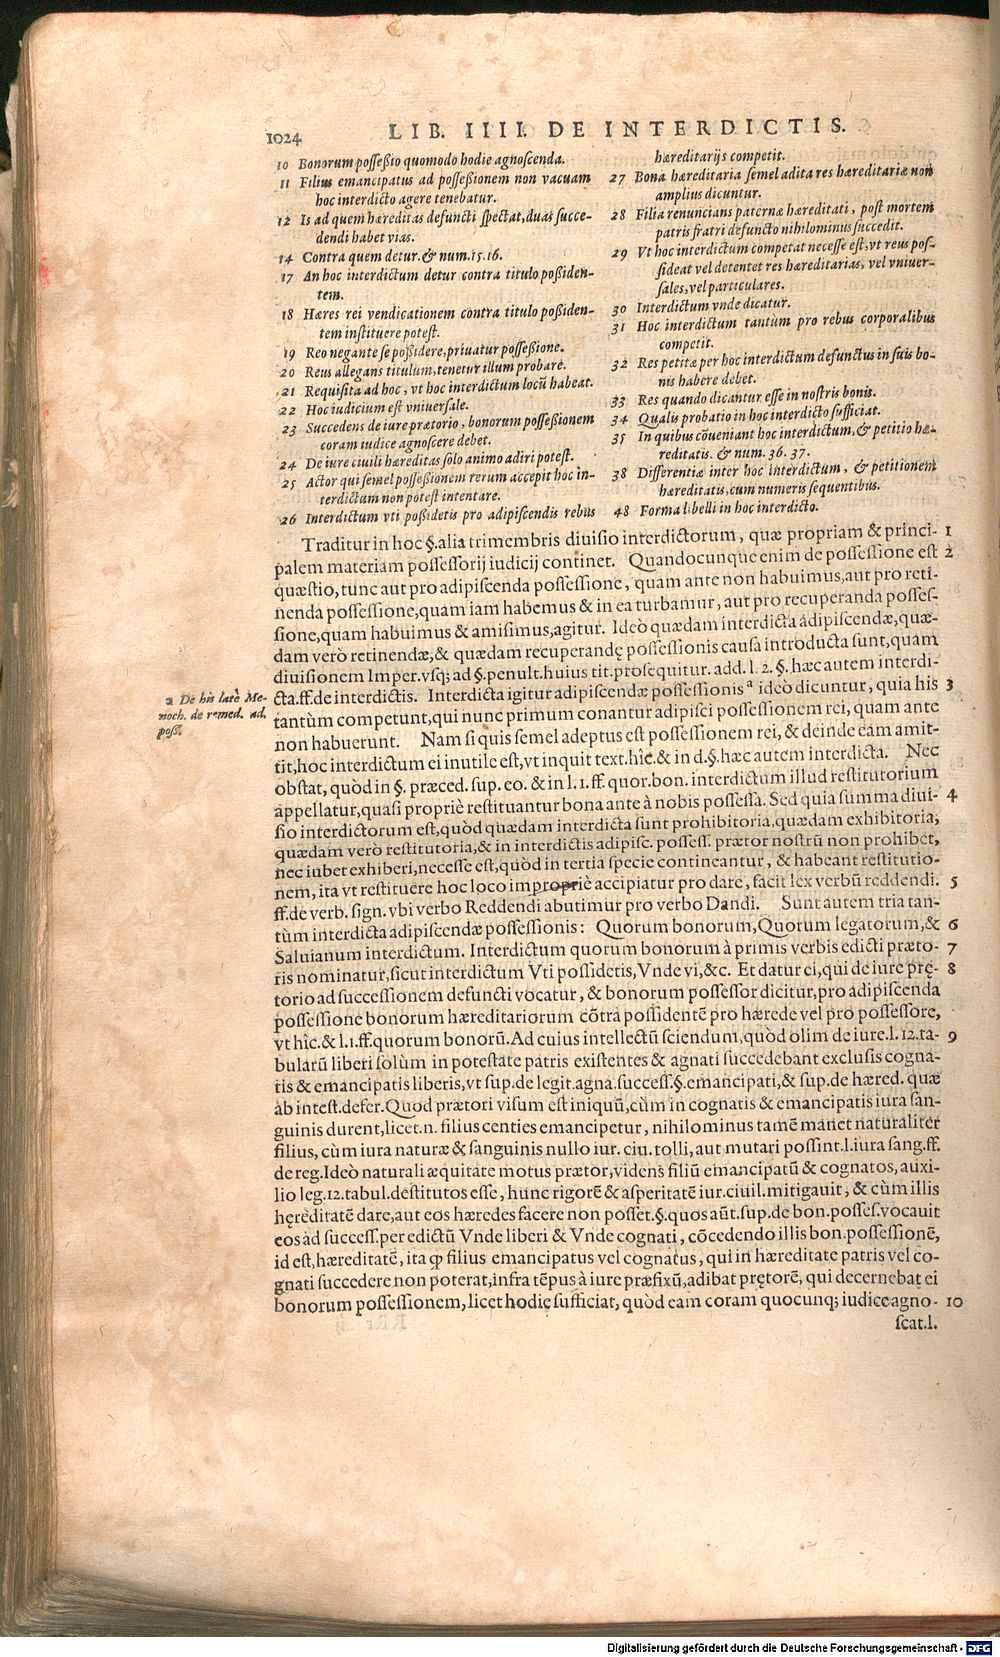 1024
LIB. IIII. DE INTERDICTIS.
10 Bonorum possessio quomodo hodie agnoscenda.
11 Filius emancipatus ad possessionem non vacuam
hoc interdicto agere tenebatur.
12 Is ad quem hæreditas defuncti spectat, duas succe-
dendi habet vias.
14 Contra quem detur. & num. 15. 16.
17 An hoc interdictum detur contra titulo possiden-
tem.
18 Hæres rei vendicationem contra titulo possiden-
tem instituere potest.
19 Reo negante se possidere, priuatur possessione.
20 Reus allegans titulum, tenetur illum probare.
21 Requisita ad hoc, vt hoc interdictum locũ habeat.
22 Hoc iudicium est vniuersale.
23 Succedens de iure prætorio, bonorum possessionem
coram iudice agnoscere debet.
24 De iure ciuili hæreditas solo animo adiri potest.
25 Actor qui semel possessionem rerum accepit hoc in-
terdictum non potest intentare.
26 Interdictum vti possidetis pro adipiscendis rebus
hæreditarijs competit.
27 Bona hæreditaria semel adita res hæreditariæ non
amplius dicuntur.
28 Filia renuncians paternæ hæreditati, post mortem
patris fratri defuncto nihilominus succedit.
29 Vt hoc interdictum competat necesse est, vt reus pos-
sideat vel detentet res hæreditarias, vel vniuer-
sales, vel particulares.
30 Interdictum vnde dicatur.
31 Hoc interdictum tantùm pro rebus corporalibus
competit.
32 Res petitæ per hoc interdictum defunctus in suis bo-
nis habere debet.
33 Res quando dicantur esse in nostris bonis.
34 Qualis probatio in hoc interdicto sufficiat.
35 In quibus cõueniant hoc interdictum, & petitio hæ-
reditatis. & num. 36. 37.
38 Differentiæ inter hoc interdictum, & petitionem
hæreditatis, cum numeris sequentibus.
48 Forma libelli in hoc interdicto.
Traditur in hoc §. alia trimembris diuisio interdictorum, quæ propriam & princi- 1
palem materiam possessorij iudicij continet. Quandocunque enim de possessione est 2
quæstio, tunc aut pro adipiscenda possessione, quam ante non habuimus, aut pro reti-
nenda possessione, quam iam habemus & in ea turbamur, aut pro recuperanda posses-
sione, quam habuimus & amisimus, agitur. Ideò quædam interdicta adipiscendæ, quæ-
dam verò retinendæ, & quædam recuperandę possessionis causa introducta sunt, quam
diuisionem Imper. vsq; ad §. penult. huius tit. prosequitur. add. l. 2. §. hæc autem interdi-
cta. ff. de interdictis. Interdicta igitur adipiscendæ possessionis a ideò dicuntur, quia his 3
tantùm competunt, qui nunc primum conantur adipisci possessionem rei, quam ante
non habuerunt. Nam si quis semel adeptus est possessionem rei, & deinde eam amit-
tit, hoc interdictum ei inutile est, vt inquit text. hîc. & in d. §. hæc autem interdicta. Nec
obstat, quòd in §. præced. sup. eo. & in l. 1. ff. quor. bon. interdictum illud restitutorium
appellatur, quasi propriè restituantur bona ante à nobis possessa. Sed quia summa diui- 4
sio interdictorum est, quòd quædam interdicta sunt prohibitoria, quædam exhibitoria,
quædam verò restitutoria, & in interdictis adipisc. possess. prætor nostrũ non prohibet,
nec iubet exhiberi, necesse est, quòd in tertia specie contineantur, & habeant restitutio-
nem, ita vt restituere hoc loco impropriè accipiatur pro dare, facit lex verbũ reddendi. 5
ff. de verb. sign. vbi verbo Reddendi abutimur pro verbo Dandi. Sunt autem tria tan-
tùm interdicta adipiscendæ possessionis: Quorum bonorum, Quorum legatorum, & 6
Saluianum interdictum. Interdictum quorum bonorum à primis verbis edicti præto- 7
ris nominatur, sicut interdictum Vti possidetis, Vnde vi, &c. Et datur ei, qui de iure prę- 8
torio ad successionem defuncti vocatur, & bonorum possessor dicitur, pro adipiscenda
possessione bonorum hæreditariorum cõtra possidentẽ pro hærede vel pro possessore,
vt hîc. & l. 1. ff. quorum bonorũ. Ad cuius intellectũ sciendum, quòd olim de iure. l. 12. ta- 9
bularũ liberi solùm in potestate patris existentes & agnati succedebant exclusis cogna-
tis & emancipatis liberis, vt sup. de legit. agna. success. §. emancipati, & sup. de hæred. quæ
ab intest. defer. Quod prætori visum est iniquũ, cùm in cognatis & emancipatis iura san-
guinis durent, licet. n. filius centies emancipetur, nihilominus tamẽ manet naturaliter
filius, cùm iura naturæ & sanguinis nullo iur. ciu. tolli, aut mutari possint. l. iura sang. ff.
de reg. Ideò naturali æquitate motus prætor, videns filiũ emancipatũ & cognatos, auxi-
lio leg. 12. tabul. destitutos esse, hunc rigorẽ & asperitatẽ iur. ciuil. mitigauit, & cùm illis
hęreditatẽ dare, aut eos hæredes facere non posset. §. quos aũt. sup. de bon. posses. vocauit
eos ad success. per edictũ Vnde liberi & Vnde cognati, cõcedendo illis bon. possessionẽ,
id est, hæreditatẽ, ita ꝙ filius emancipatus vel cognatus, qui in hæreditate patris vel co-
gnati succedere non poterat, infra tẽpus à iure præfixũ, adibat prętorẽ, qui decernebat ei
bonorum possessionem, licet hodię sufficiat, quòd eam coram quocunq; iudice agno- 10
scat. l.
a De his latè Me-
noch. de remed. ad.
poss.
Digitalisierung gefördert durch die Deutsche Forschungsgemeinschaft - DFG